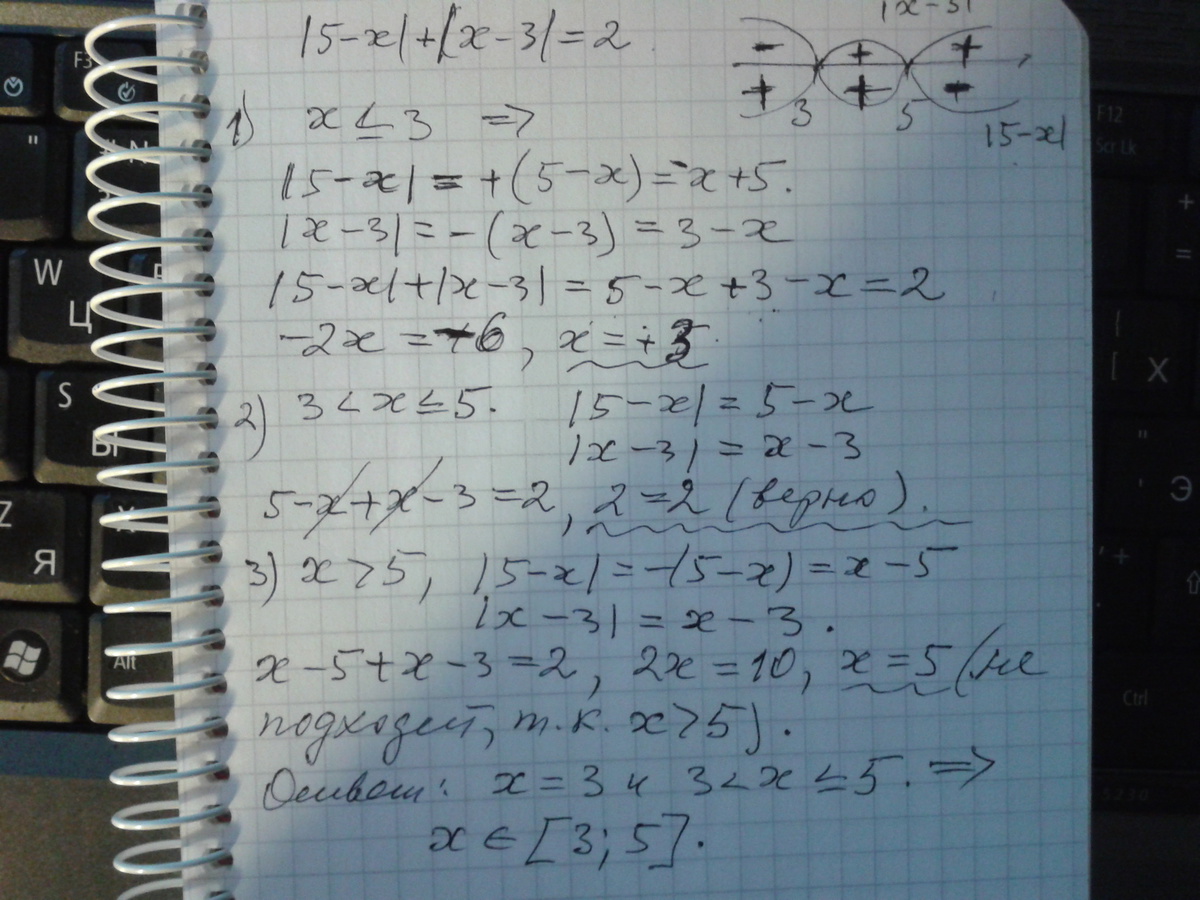 |5-x|+|x-3|=2
|x-3|
- + +
+ + -
3 5
|5-x|
1) x ≤ 3 ⇒
|5-x| = +(5-x) = -x+5.
|x-3| = -(x-3) = 3-x
|5-x|+|x-3| = 5-x+3-x = 2
-2x = -6, x = +3.
2) 3 < x ≤ 5. |5-x| = 5-x
|x-3| = x-3
5-x+x-3 = 2, 2=2 (верно).
3) x > 5, |5-x| = -(5-x) = x-5
|x-3| = x-3.
x-5+x-3 = 2, 2x = 10, x = 5 (не
подходит, т.к. x > 5).
Ответ: x = 3 и 3 < x ≤ 5. ⇒
x ∈ [3; 5].
F3
"
W
Ц
S
Ы
Z
Я
X
Alt
F12
Scr Lk
+
=
{
[ Х
"
' Э
Ctrl